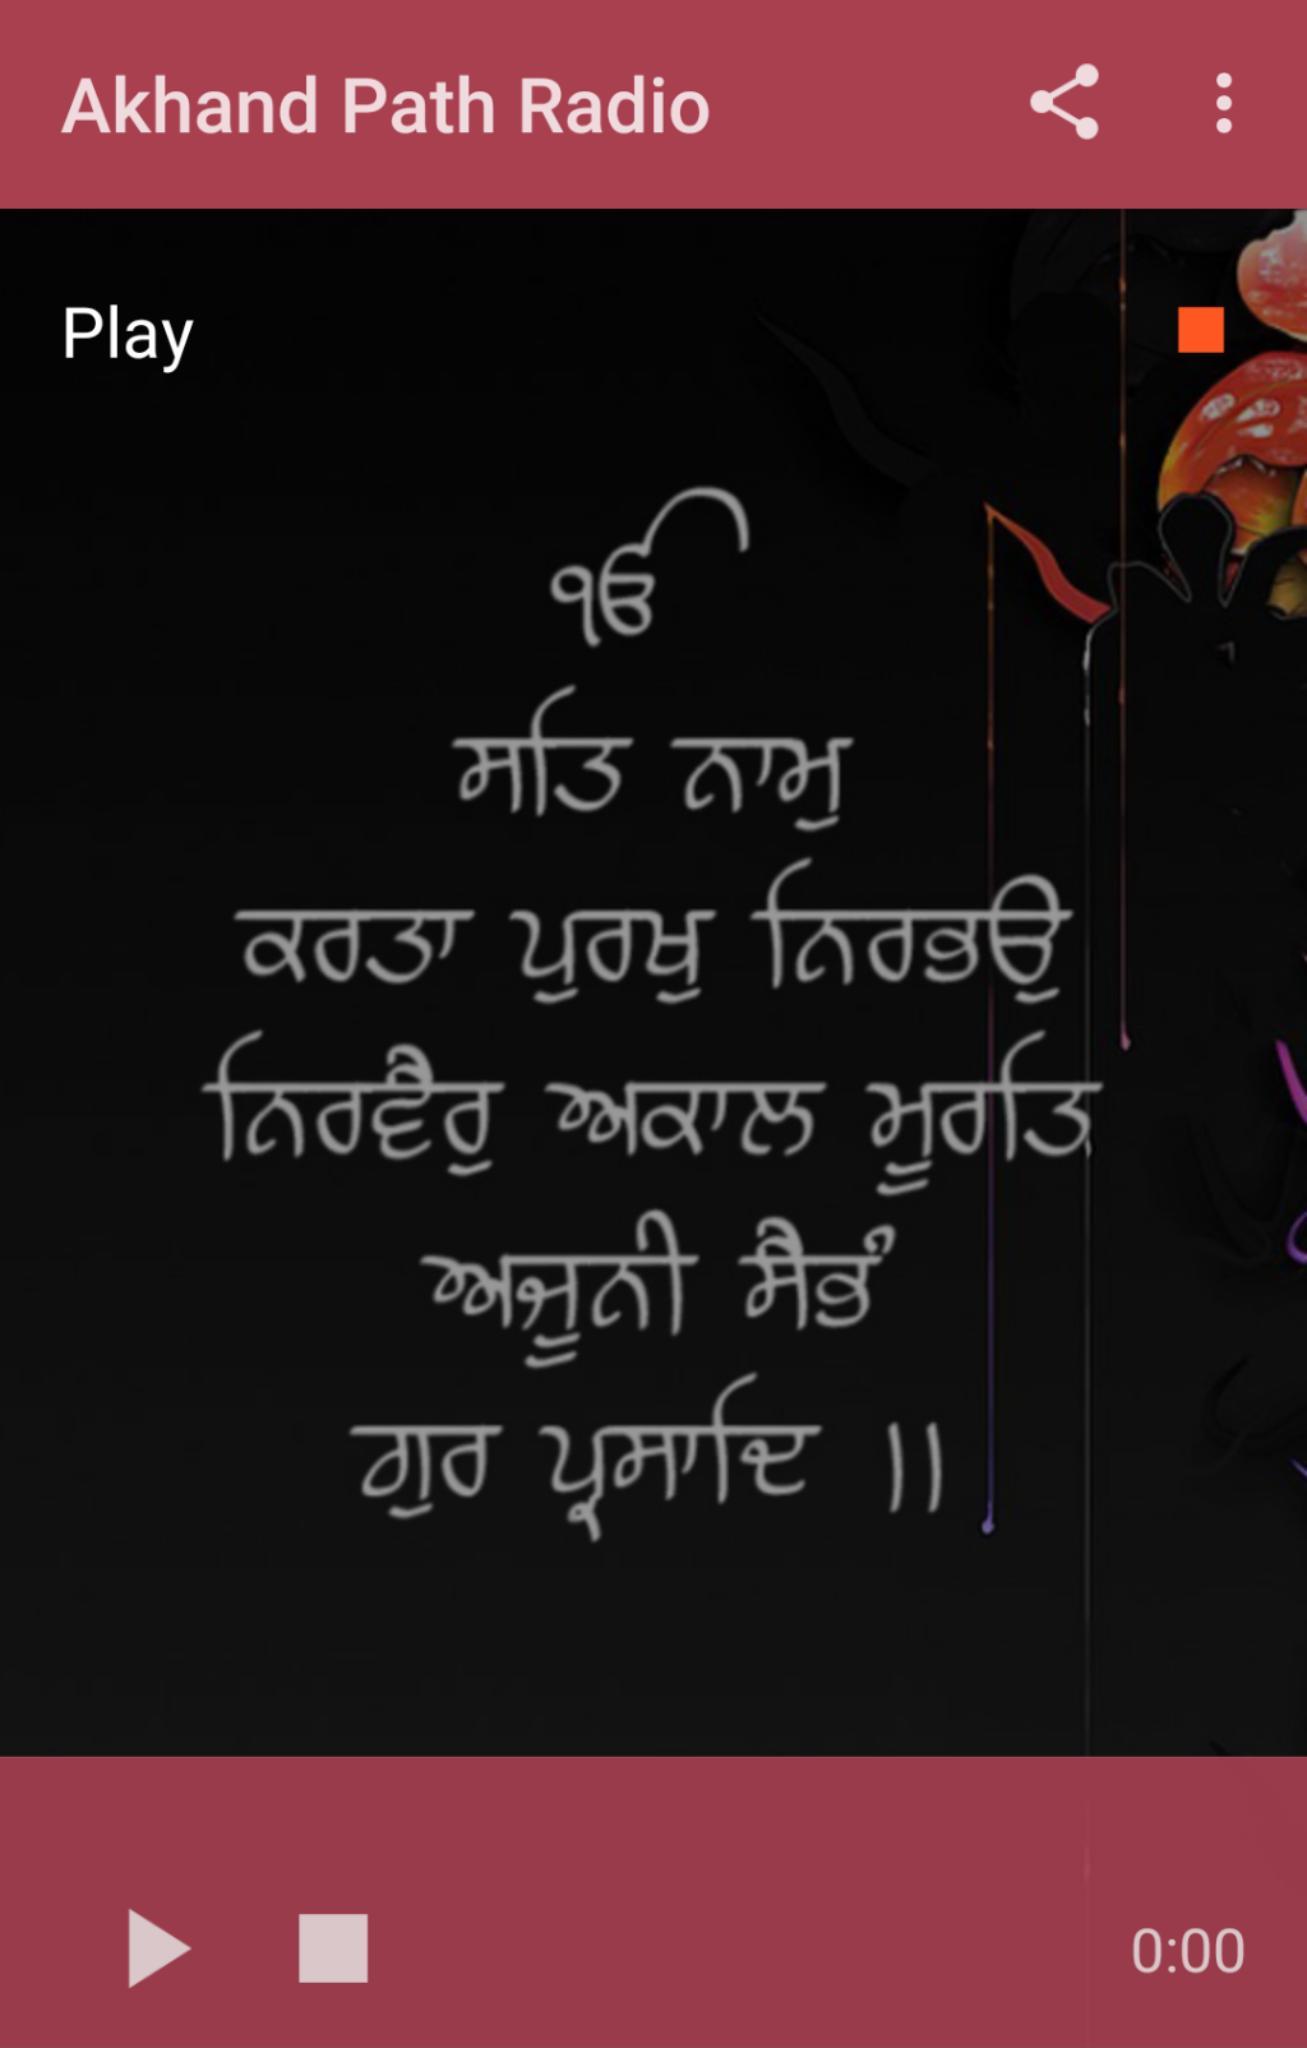 Akhand Path Radio
Play
ੴ
ਸਤਿ ਨਾਮੁ
ਕਰਤਾ ਪੁਰਖੁ ਨਿਰਭਉ
ਨਿਰਵੈਰੁ ਅਕਾਲ ਮੂਰਤਿ
ਅਜੂਨੀ ਸੈਭੰ
ਗੁਰ ਪ੍ਰਸਾਦਿ ॥
0:00